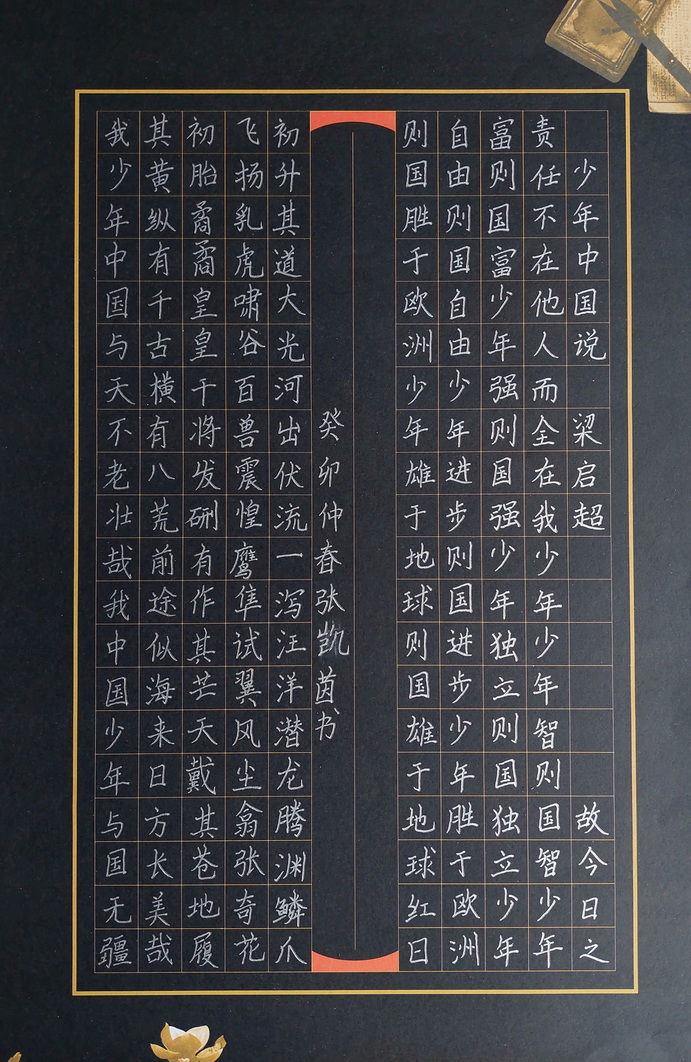 少年中国说 梁启超 故今日之
责任不在他人而全在我少年少年智则国智少年
富则国富少年强则国强少年独立则国独立少年
自由则国自由少年进步则国进步少年胜于欧洲
则国胜于欧洲少年雄于地球则国雄于地球红日
癸卯仲春张凯茵书
初升其道大光河出伏流一泻汪洋潜龙腾渊鳞爪
飞扬乳虎啸谷百兽震惶鹰隼试翼风尘翕张奇花
初胎矞矞皇皇干将发硎有作其芒天戴其苍地履
其黄纵有千古横有八荒前途似海来日方长美哉
我少年中国与天不老壮哉我中国少年与国无疆